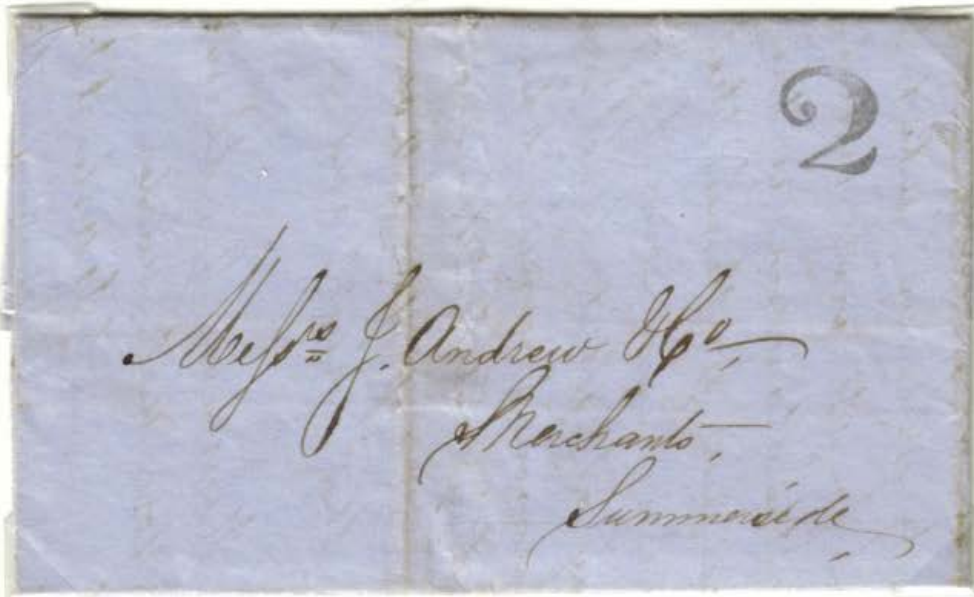 2
Messrs J. Andrew & Co,
Merchants,
Summerside